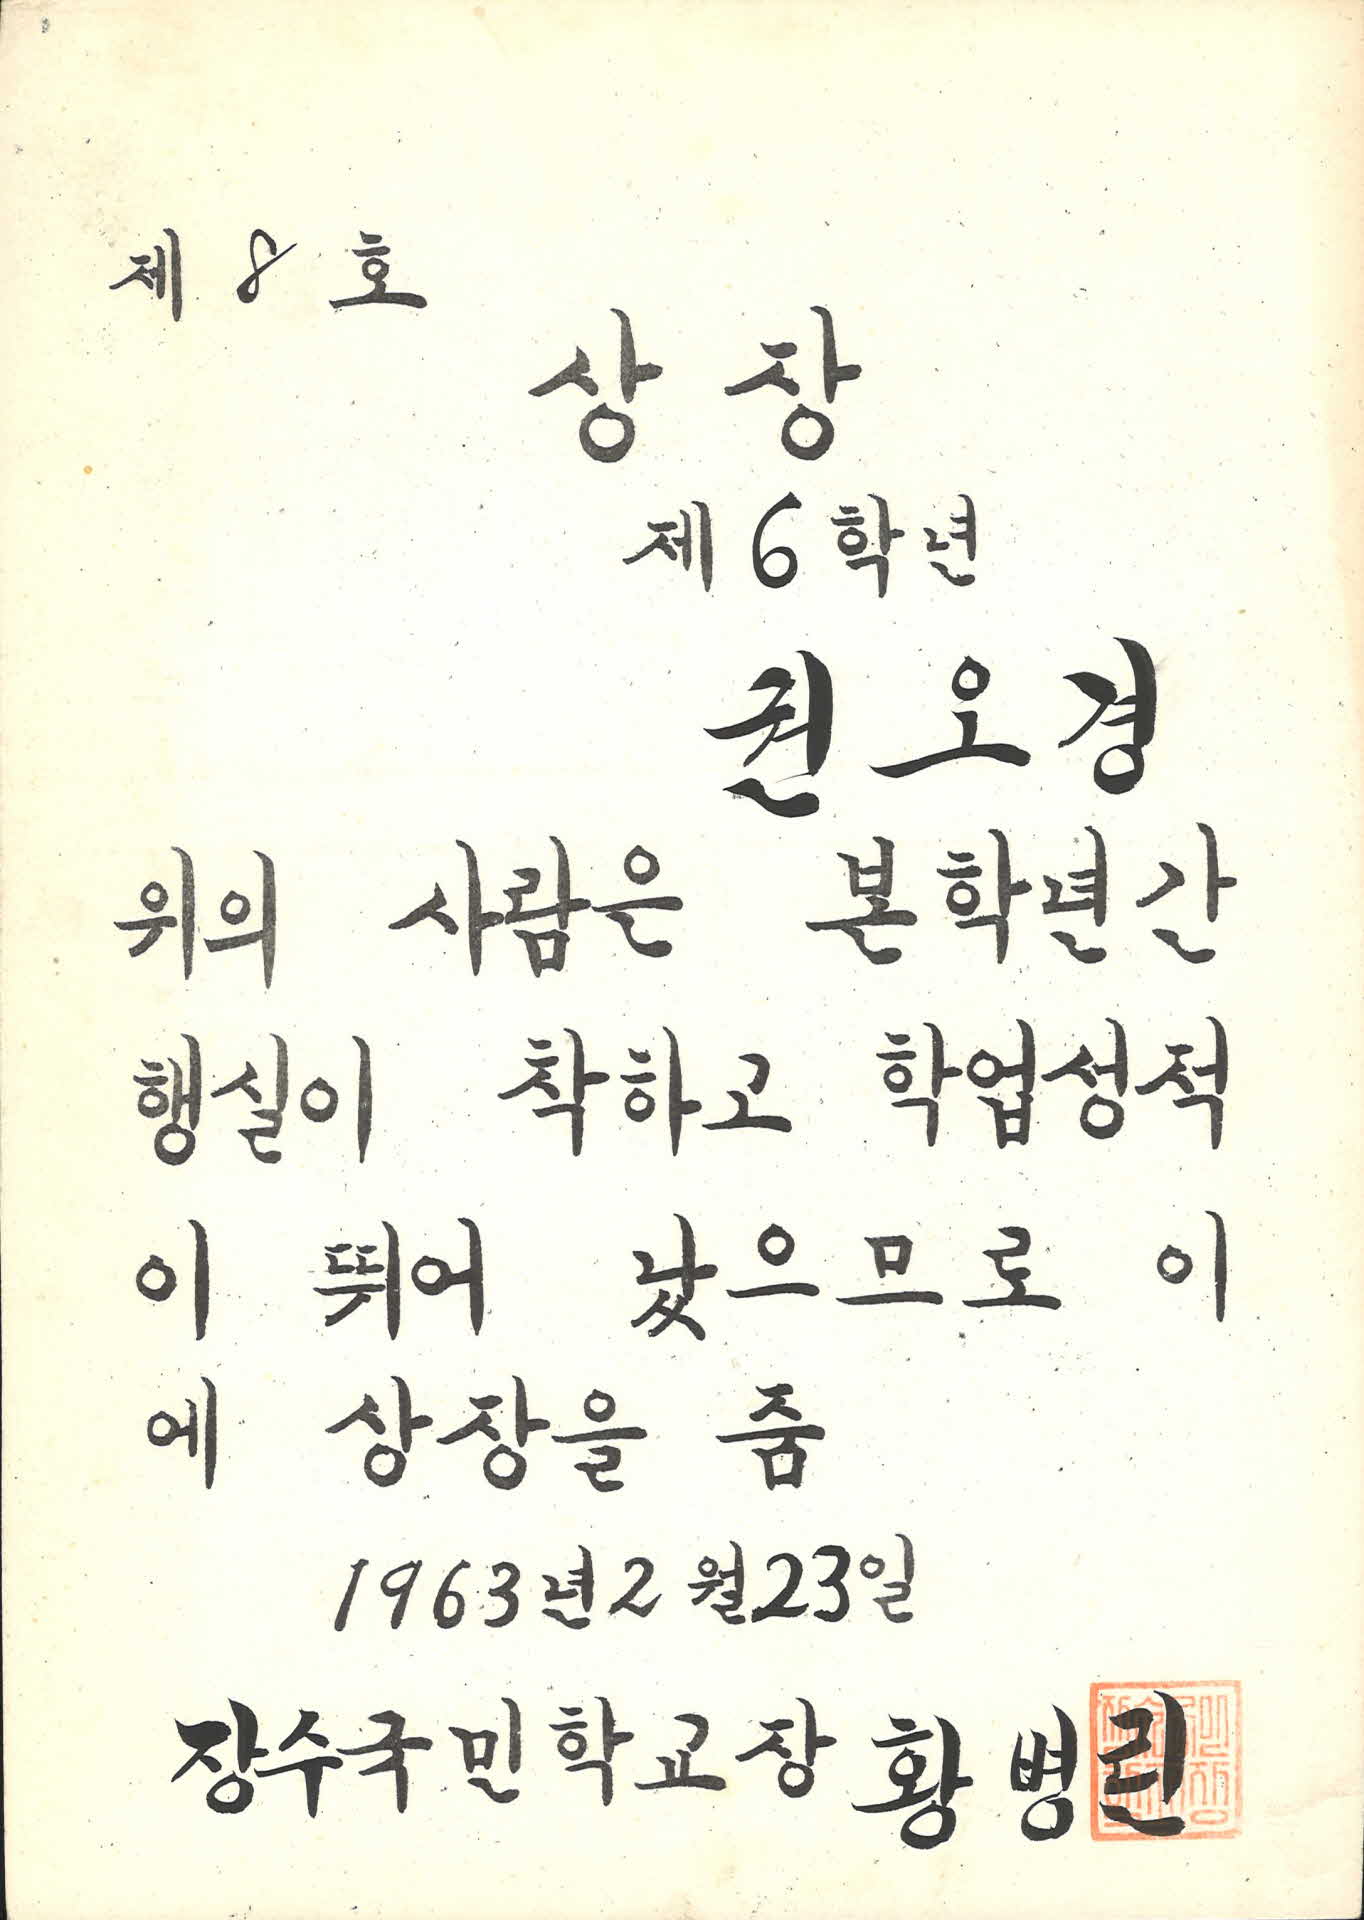 제 8 호
상 장
제 6 학년
권 오 경
위의 사람은 본학년간
행실이 착하고 학업성적
이 뛰어 났으므로 이
에 상장을 줌
1963년 2월 23일
장수국민학교장 황 병 린